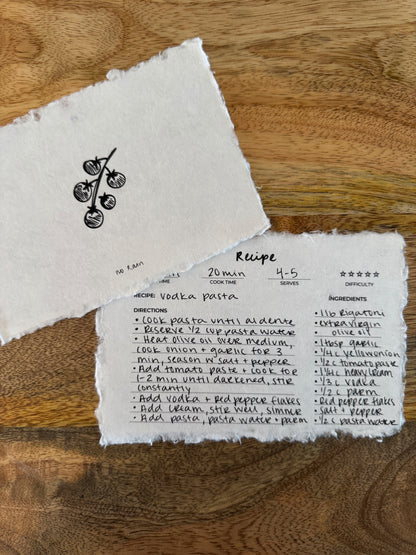 no rain
Recipe
20 min 4-5
TIME COOK TIME SERVES DIFFICULTY
RECIPE: vodka pasta INGREDIENTS
DIRECTIONS
• Cook pasta until al dente
• Reserve 1/2 cup pasta water
• Heat olive oil over medium,
cook onion + garlic for 3
min, season w salt + pepper
• Add tomato paste + cook for
1-2 min until darkened, stir
constantly
• Add vodka + Red pepper flakes
• Add cream, stir well, simmer
• Add pasta, pasta water + parm
• 1 lb Rigatoni
• extra virgin
olive oil
• 1 tbsp garlic
• 1/4 c yellow onion
• 1/2 c tomato paste
• 1 1/4 c heavy cream
• 1/3 c vodka
• 1/2 c parm
• Red pepper flakes
• salt + pepper
• 1/2 c pasta water